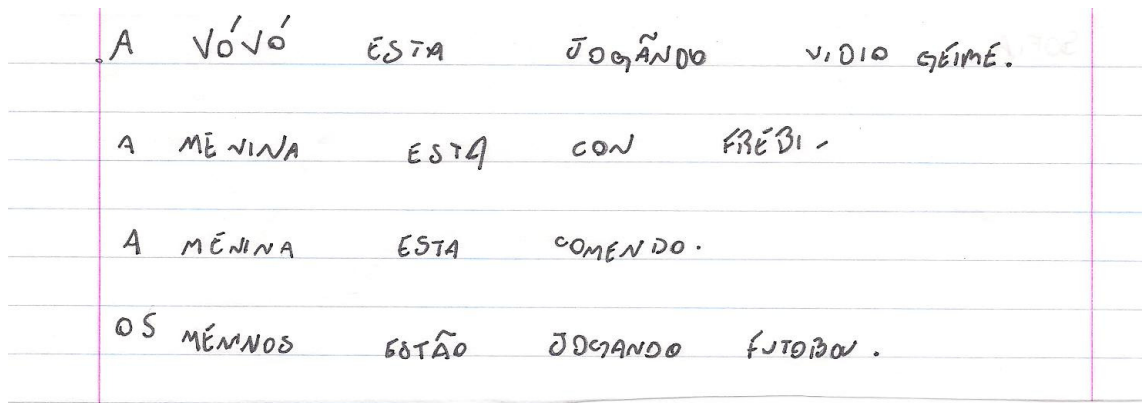 A VÓVÓ ESTA JOGÃNDO VIDIO GEIME.
A MENINA ESTA CON FREBI.
A MENINA ESTA COMENDO.
OS MENINOS ESTÃO JOGANDO FUTOBOU.